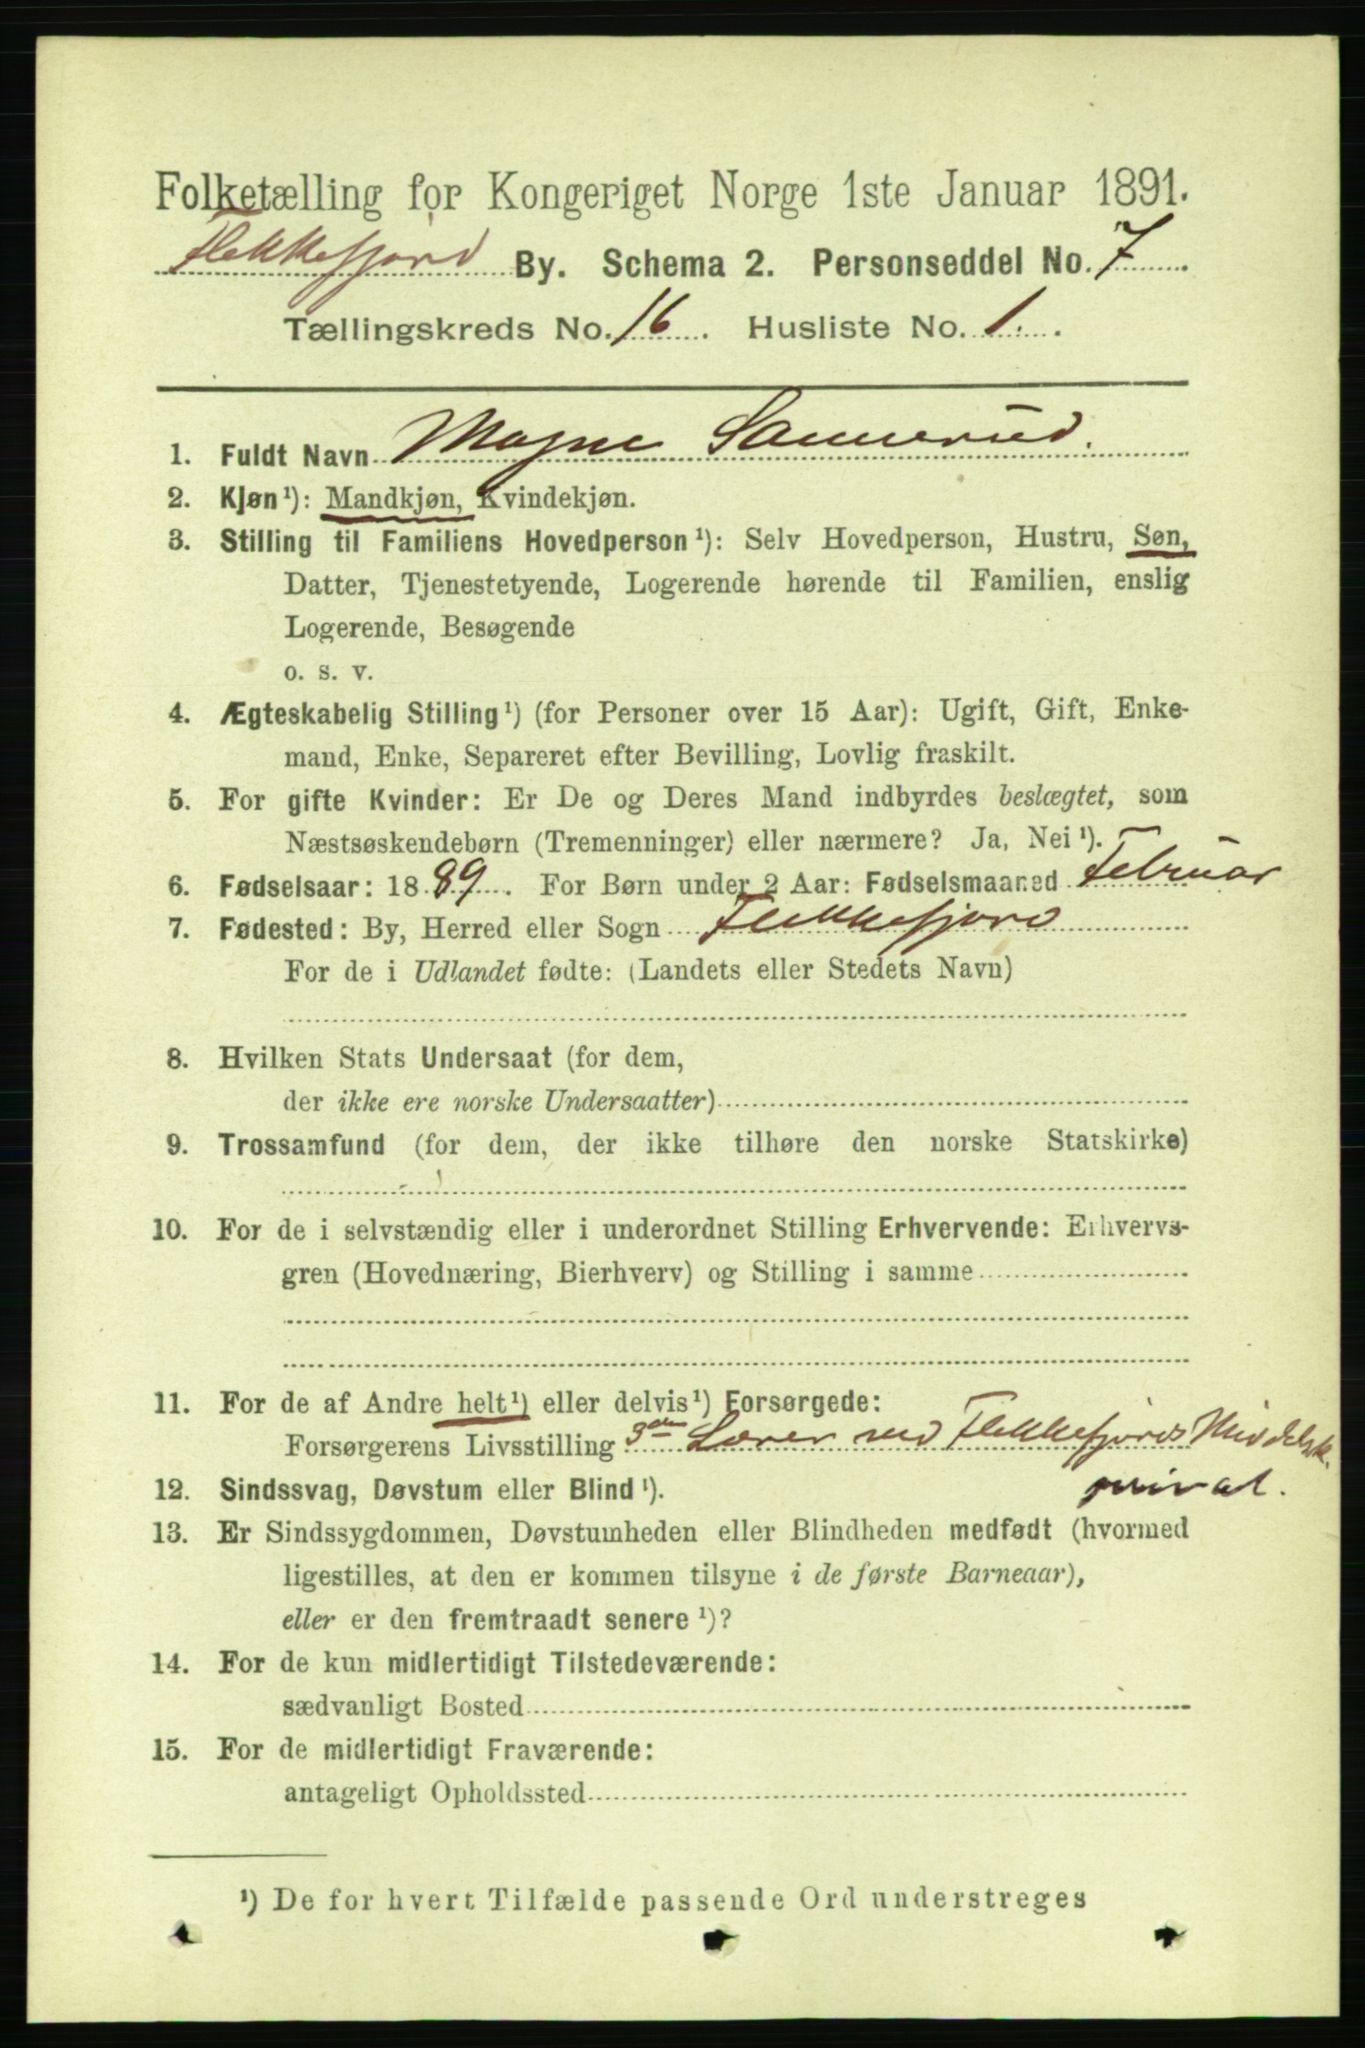 Folketælling for Kongeriget Norge 1ste Januar 1891.
Flekkefjord By. Schema 2. Personseddel No. 7
Tællingskreds No. 16. Husliste No. 1.
1. Fuldt Navn Magne Sannerud.
2. Kjøn¹): Mandkjøn, Kvindekjøn.
3. Stilling til Familiens Hovedperson¹): Selv Hovedperson, Hustru, Søn,
Datter, Tjenestetyende, Logerende hørende til Familien, enslig
Logerende, Besøgende
o. s. v.
4. Ægteskabelig Stilling¹) (for Personer over 15 Aar): Ugift, Gift, Enke-
mand, Enke, Separeret efter Bevilling, Lovlig fraskilt.
5. For gifte Kvinder: Er De og Deres Mand indbyrdes beslægtet, som
Næstsøskendebørn (Tremenninger) eller nærmere? Ja, Nei¹).
6. Fødselsaar: 1889. For Børn under 2 Aar: Fødselsmaaned Februar
7. Fødested: By, Herred eller Sogn Flekkefjord
For de i Udlandet fødte: (Landets eller Stedets Navn)
8. Hvilken Stats Undersaat (for dem,
der ikke ere norske Undersaatter)
9. Trossamfund (for dem, der ikke tilhøre den norske Statskirke)
10. For de i selvstændig eller i underordnet Stilling Erhvervende: Erhvervs-
gren (Hovednæring, Bierhverv) og Stilling i samme
11. For de af Andre helt¹) eller delvis¹) Forsørgede:
Forsørgerens Livsstilling 3den Lærer ved Flekkefjords Middelsk.
privat.
12. Sindssvag, Døvstum eller Blind¹).
13. Er Sindssygdommen, Døvstumheden eller Blindheden medfødt (hvormed
ligestilles, at den er kommen tilsyne i de første Barneaar),
eller er den fremtraadt senere¹)?
14. For de kun midlertidigt Tilstedeværende:
sædvanligt Bosted
15. For de midlertidigt Fraværende:
antageligt Opholdssted
¹) De for hvert Tilfælde passende Ord understreges